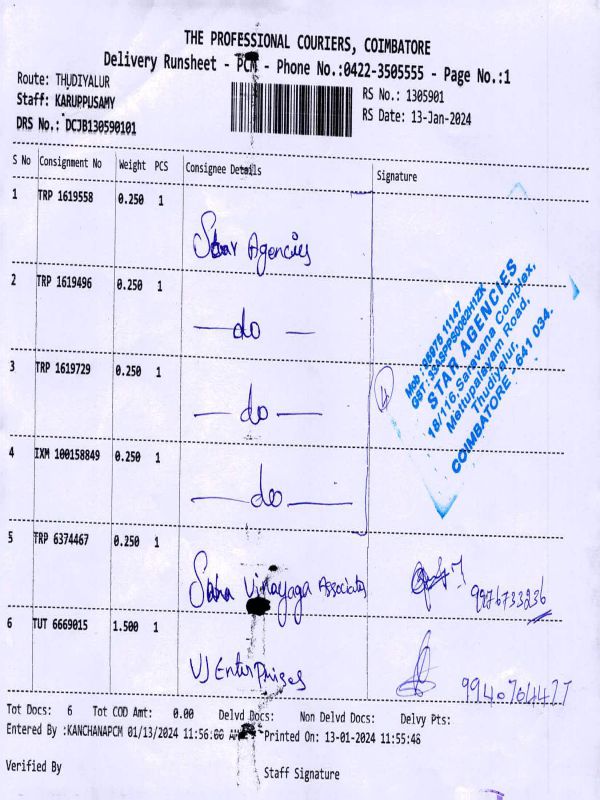 THE PROFESSIONAL COURIERS, COIMBATORE
Delivery Runsheet - PCM - Phone No.:0422-3505555 - Page No.:1
Route: THUDIYALUR
Staff: KARUPPUSAMY
DRS No.: DCJB130590101
RS No.: 1305901
RS Date: 13-Jan-2024
S No Consignment No Weight PCS Consignee Details Signature
1 TRP 1619558 0.250 1
Star Agencies
2 TRP 1619496 0.250 1
— do —
3 TRP 1619729 0.250 1
— do —
4 IXM 100158849 0.250 1
— do —
Mob : 95975 11147
STAR AGENCIES
18/116, Saravana Complex,
Mettupalayam Road,
Thudiyalur,
COIMBATORE - 641 034.
5 TRP 6374467 0.250 1
Vinayaga Associates
9976733236
6 TUT 6669015 1.500 1
VJ Enterprises
9940764477
Tot Docs: 6 Tot COD Amt: 0.00 Delvd Docs: Non Delvd Docs: Delvy Pts:
Entered By :KANCHANAPCM 01/13/2024 11:56:00 AM Printed On: 13-01-2024 11:55:48
Verified By Staff Signature